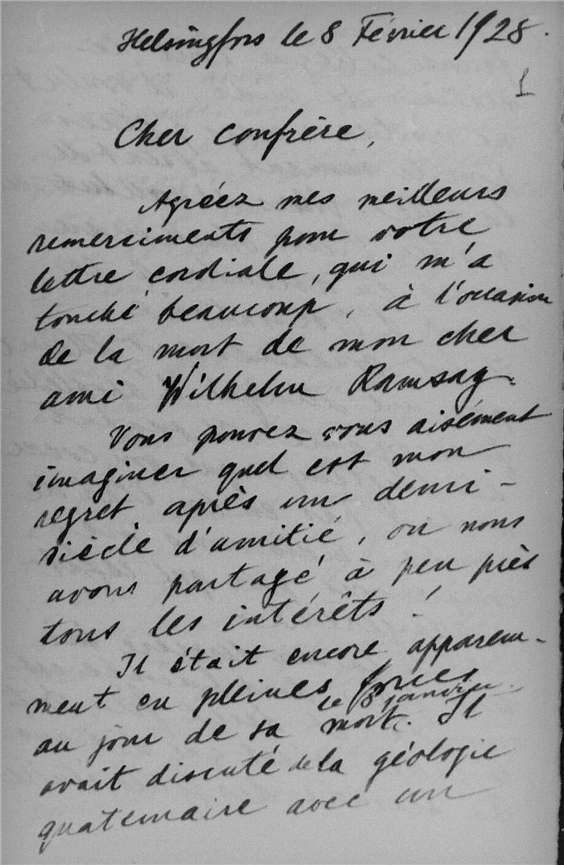 Helsingfors le 8 Février 1928.
1
Cher confrère,
Agréez mes meilleurs
remerciments pour votre
lettre cordiale, qui m'a
touché beaucoup, à l'occasion
de la mort de mon cher
ami Wilhelm Ramsay.
Vous pouvez vous aisément
imaginer quel est mon
regret après un demi-
siècle d'amitié, ou nous
avons partagé à peu près
tous les intérêts!
Il était encore apparem-
ment en pleines forces
le 8 janvier.
au jour de sa mort. Il
avait discuté de la géologie
quaternaire avec un